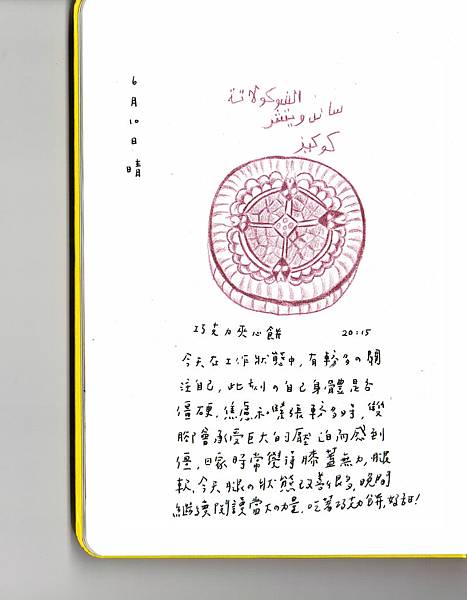 6月10日 晴
الشوكولاتة
ساندويتشر
كوكيز
巧克力夾心餅 20:15
今天在工作狀態中,有較多の關
注自己,此刻の自己身體是否
僵硬,焦慮和緊張較多時,雙
腳會承受巨大的壓迫而感到
僵,回家時常覺得膝蓋無力,腿
軟,今天腿の狀態改善很多,晚間
繼續閱讀當大の力量,吃著巧克力餅,好甜!